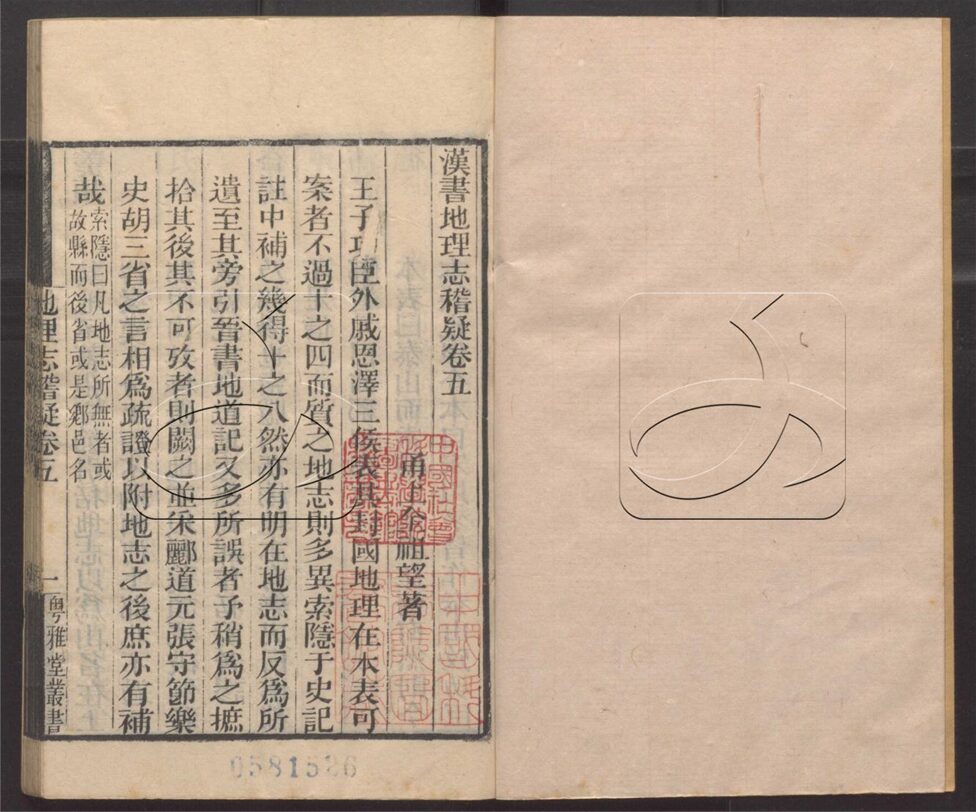 漢書地理志稽疑卷五
甬上全祖望著
王子功臣外戚恩澤三侯表其封國地理在本表可
案者不過十之四而質之地志則多異索隱于史記
註中補之幾得十之八然亦有明在地志而反爲所
遺至其旁引晉書地道記又多所誤者予稍爲之摭
拾其後其不可攷者則闕之並采酈道元張守節樂
史胡三省之言相爲疏證以附地志之後庶亦有補
哉索隱曰凡地志所無者或
故縣而後省或是鄉邑名
地理志稽疑卷五
一
粵雅堂叢書
0581526